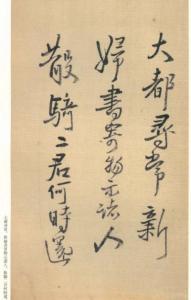 大都尋常新
婦書寄物示諸人
散騎二君何時還